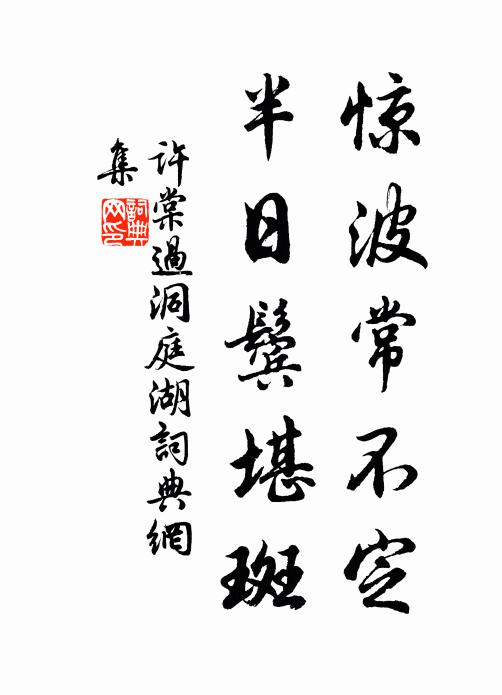 惊波常不定
半日鬓堪斑
許棠過洞庭湖詞典網
集
詞典
网印